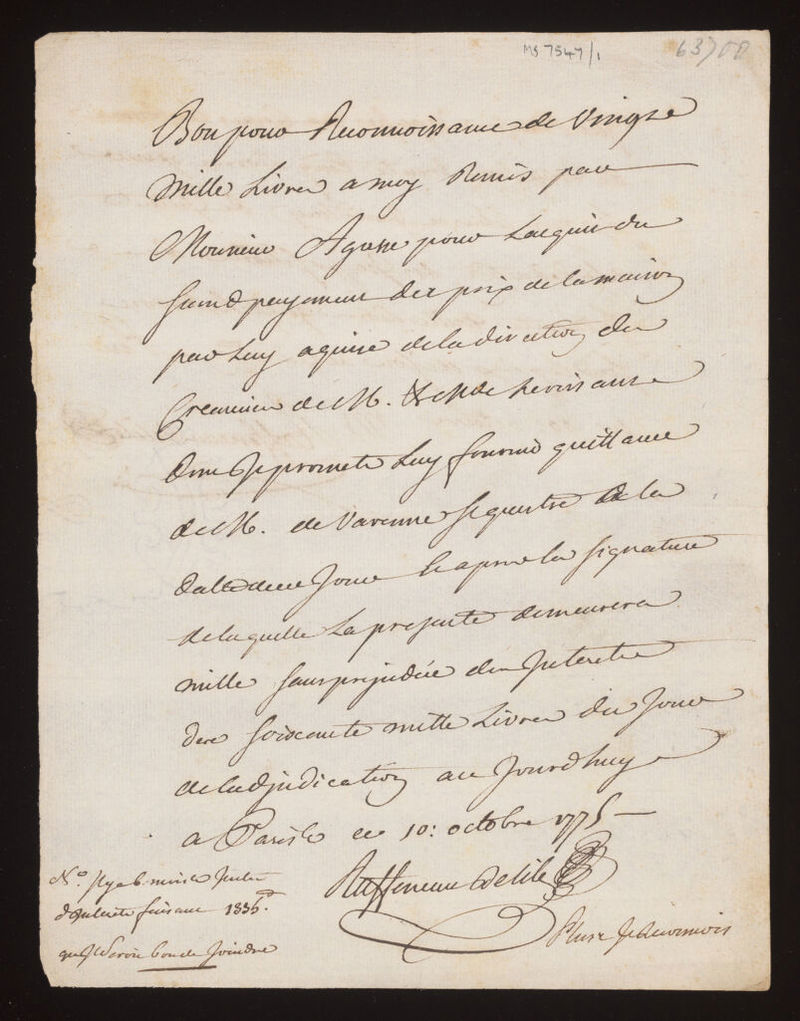 MS 7547/1
63708
Bon pour Reconnoissance de Vingte
mille Livres a moy Remis par
Monsieur Agasse pour Lacquit du
payement des prix de la maison
par Luy aquise de la direction des
Creanciers de M.
dont Je promets Luy fournir quittance
de M. de Varenne Sequestre de la
datte de ce Jour Et apres la signature
de laquelle La presente demeurera
nulle sans prejudice des Interets
des soixante mille Livres du Jour
de ladjudication au Jourdhuy
a Paris le ce 10: octobre 1775
Ruffeneau Delile
N.º Il y a 6 mois
d'Interets faisant
qu'il seroit bon de Joindre
Plus Je Reconnois